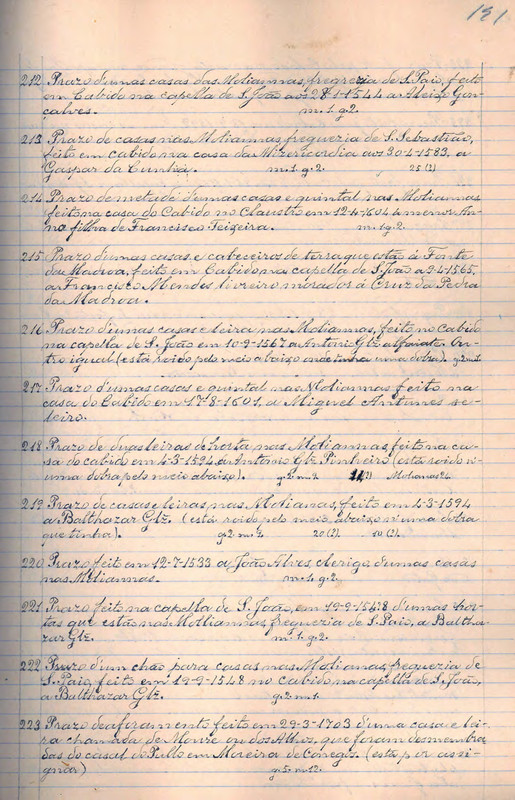 191
212 Prazo d'umas casas das Moliannas, freguezia de S. Paio, feito
em Cabido na capella de S. João aos 28-1-1544 a Aleixo Gon-
çalves. m. 1. g. 2.
213 Prazo de casas nas Moliannas, freguezia de S. Sebastião,
feito em cabido na casa da Mizericordia aos 30-4-1583, a
Gaspar da Cunha. m. 1. g. 2. 25 (2)
214 Prazo de metade d'umas casas e quintal nas Moliannas
feito na casa do Cabido no Claustro em 12-4-1604 á menor An-
na filha de Francisco Teixeira. m. 1 g. 2.
215 Prazo d'umas casas e cabeceiros de terra que estão á Fonte
da Madroa, feito em Cabido na capella de S. João a 9-4-1565,
a Francisco Mendes livreiro morador á Cruz da Pedra
da Madroa.
216 Prazo d'umas casas e leira nas Moliannas, feito no Cabido
na capella de S. João em 10-9-1567 a Antonio Glz. alfaiate. Ou-
tro igual (está roido pelo meio abaixo onde tinha uma dobra). g. 2 m. 1.
217 Prazo d'umas casas e quintal nas Moliannas feito na
casa do Cabido em 17-8-1601, a Miguel Antunes se-
leiro.
218 Prazo de duas leiras de horta nas Moliannas, feito na ca-
sa do cabido em 4-3-1594 a Antonio Glz Pinheiro (está roido n'-
uma dobra pelo meio abaixo). g. 2. m. 1.
219 Prazo de casas e leiras, nas Molianas, feito em 4-3-1594
a Balthazar Glz. (está roido pelo meio abaixo n'uma dobra
que tinha). g. 2 m. 1. 20 (2). 10 (2).
220 Prazo feito em 12-7-1533 a João Alves, clerigo, d'umas casas
nas Moliannas. m. 1. g. 2.
221 Prazo feito na capella de S. João, em 19-9-1548 d'umas hor-
tas que estão nas Molliannas, freguezia de S. Paio, a Baltha-
zar Glz. m. 1. g. 2.
222 Prazo d'um chão para casas nas Molianas, freguezia de
S. Paio, feito em 19-9-1548 no cabido na capella de S. João,
a Balthazar Glz. g. 2. m. 1.
223 Prazo de aforamento feito em 29-3-1703 d'uma casa e lei-
ra chamada de ou dos Alhos, que foram desmembra-
das do casal do em Moreira de Conegos. (está por assi-
gnar) g. 5. m. 12.